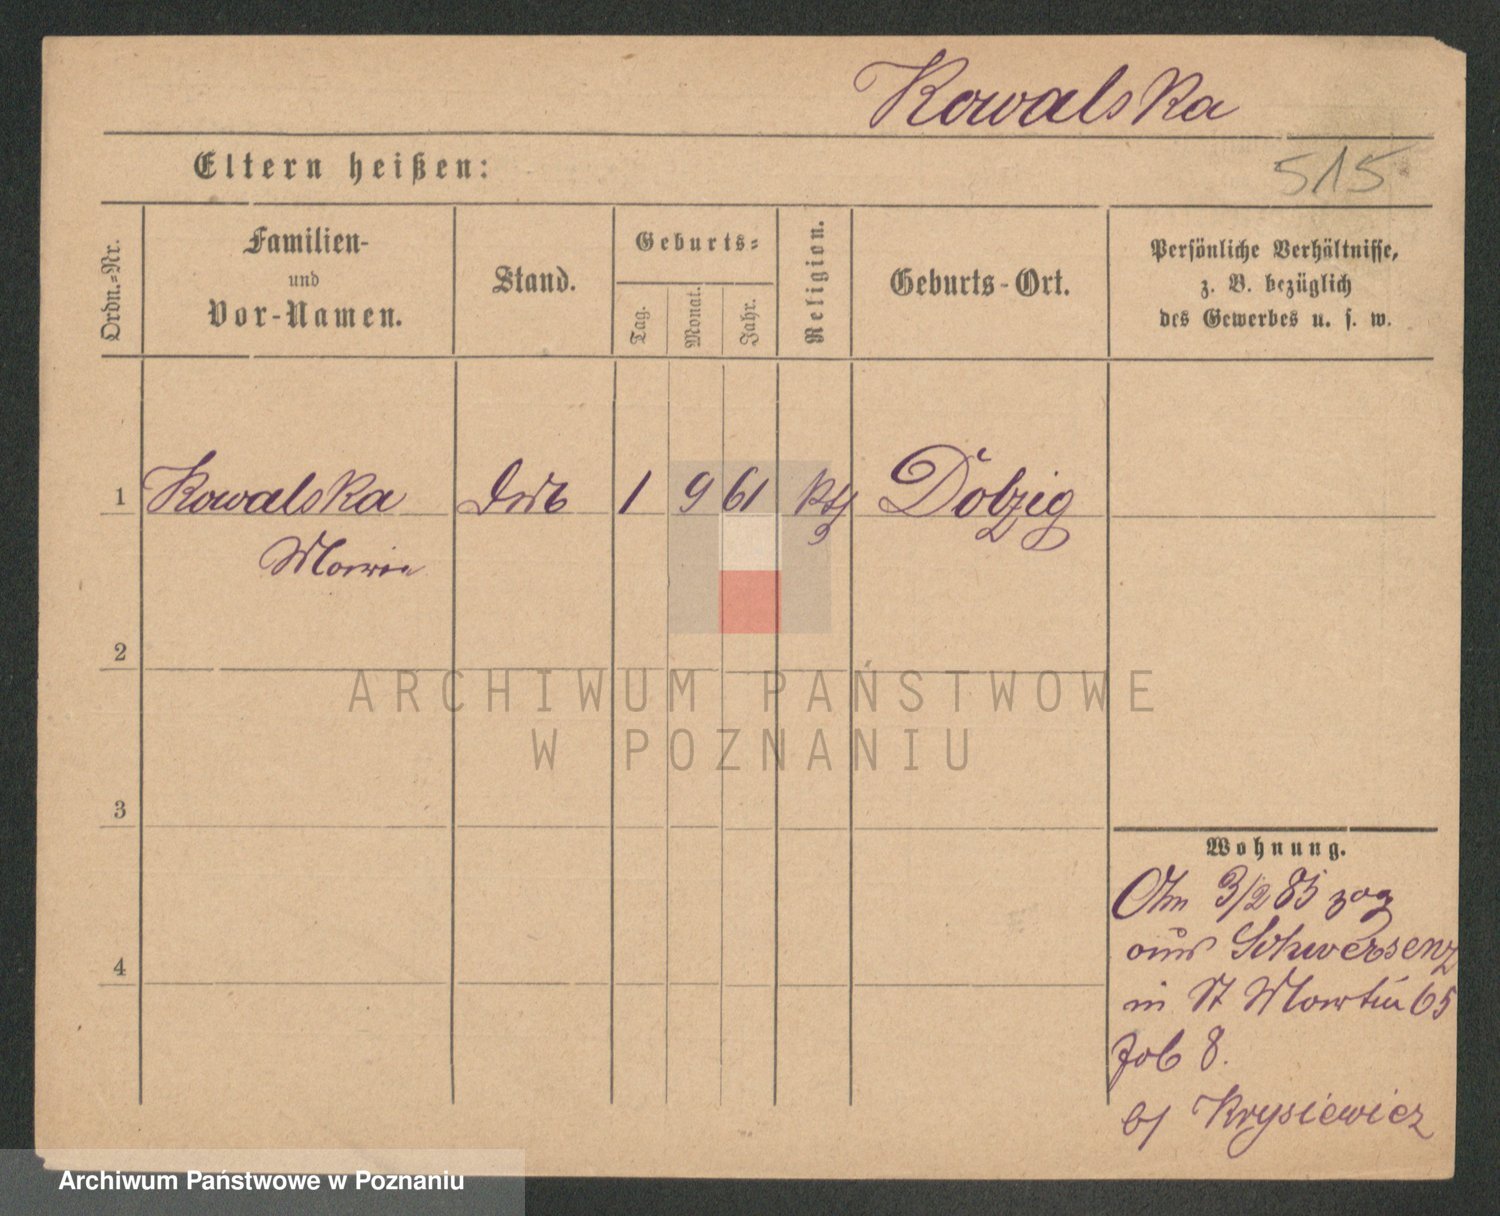 Kowalska
Eltern heißen:
515
Ordn.-Nr.
Familien-
und
Vor-Namen.
Stand.
Geburts-
Tag.
Monat.
Jahr.
Religion.
Geburts-Ort.
Persönliche Verhältnisse,
z. B. bezüglich
des Gewerbes u. s. w.
1 Kowalska 1 9 61 Dolzig
Marie
2
ARCHIWUM PAŃSTWOWE
W POZNANIU
3
4
Wohnung.
3/2 85 zog
aus Schwersenz
in St Martin 65
8.
b/ Krysiewicz
Archiwum Państwowe w Poznaniu